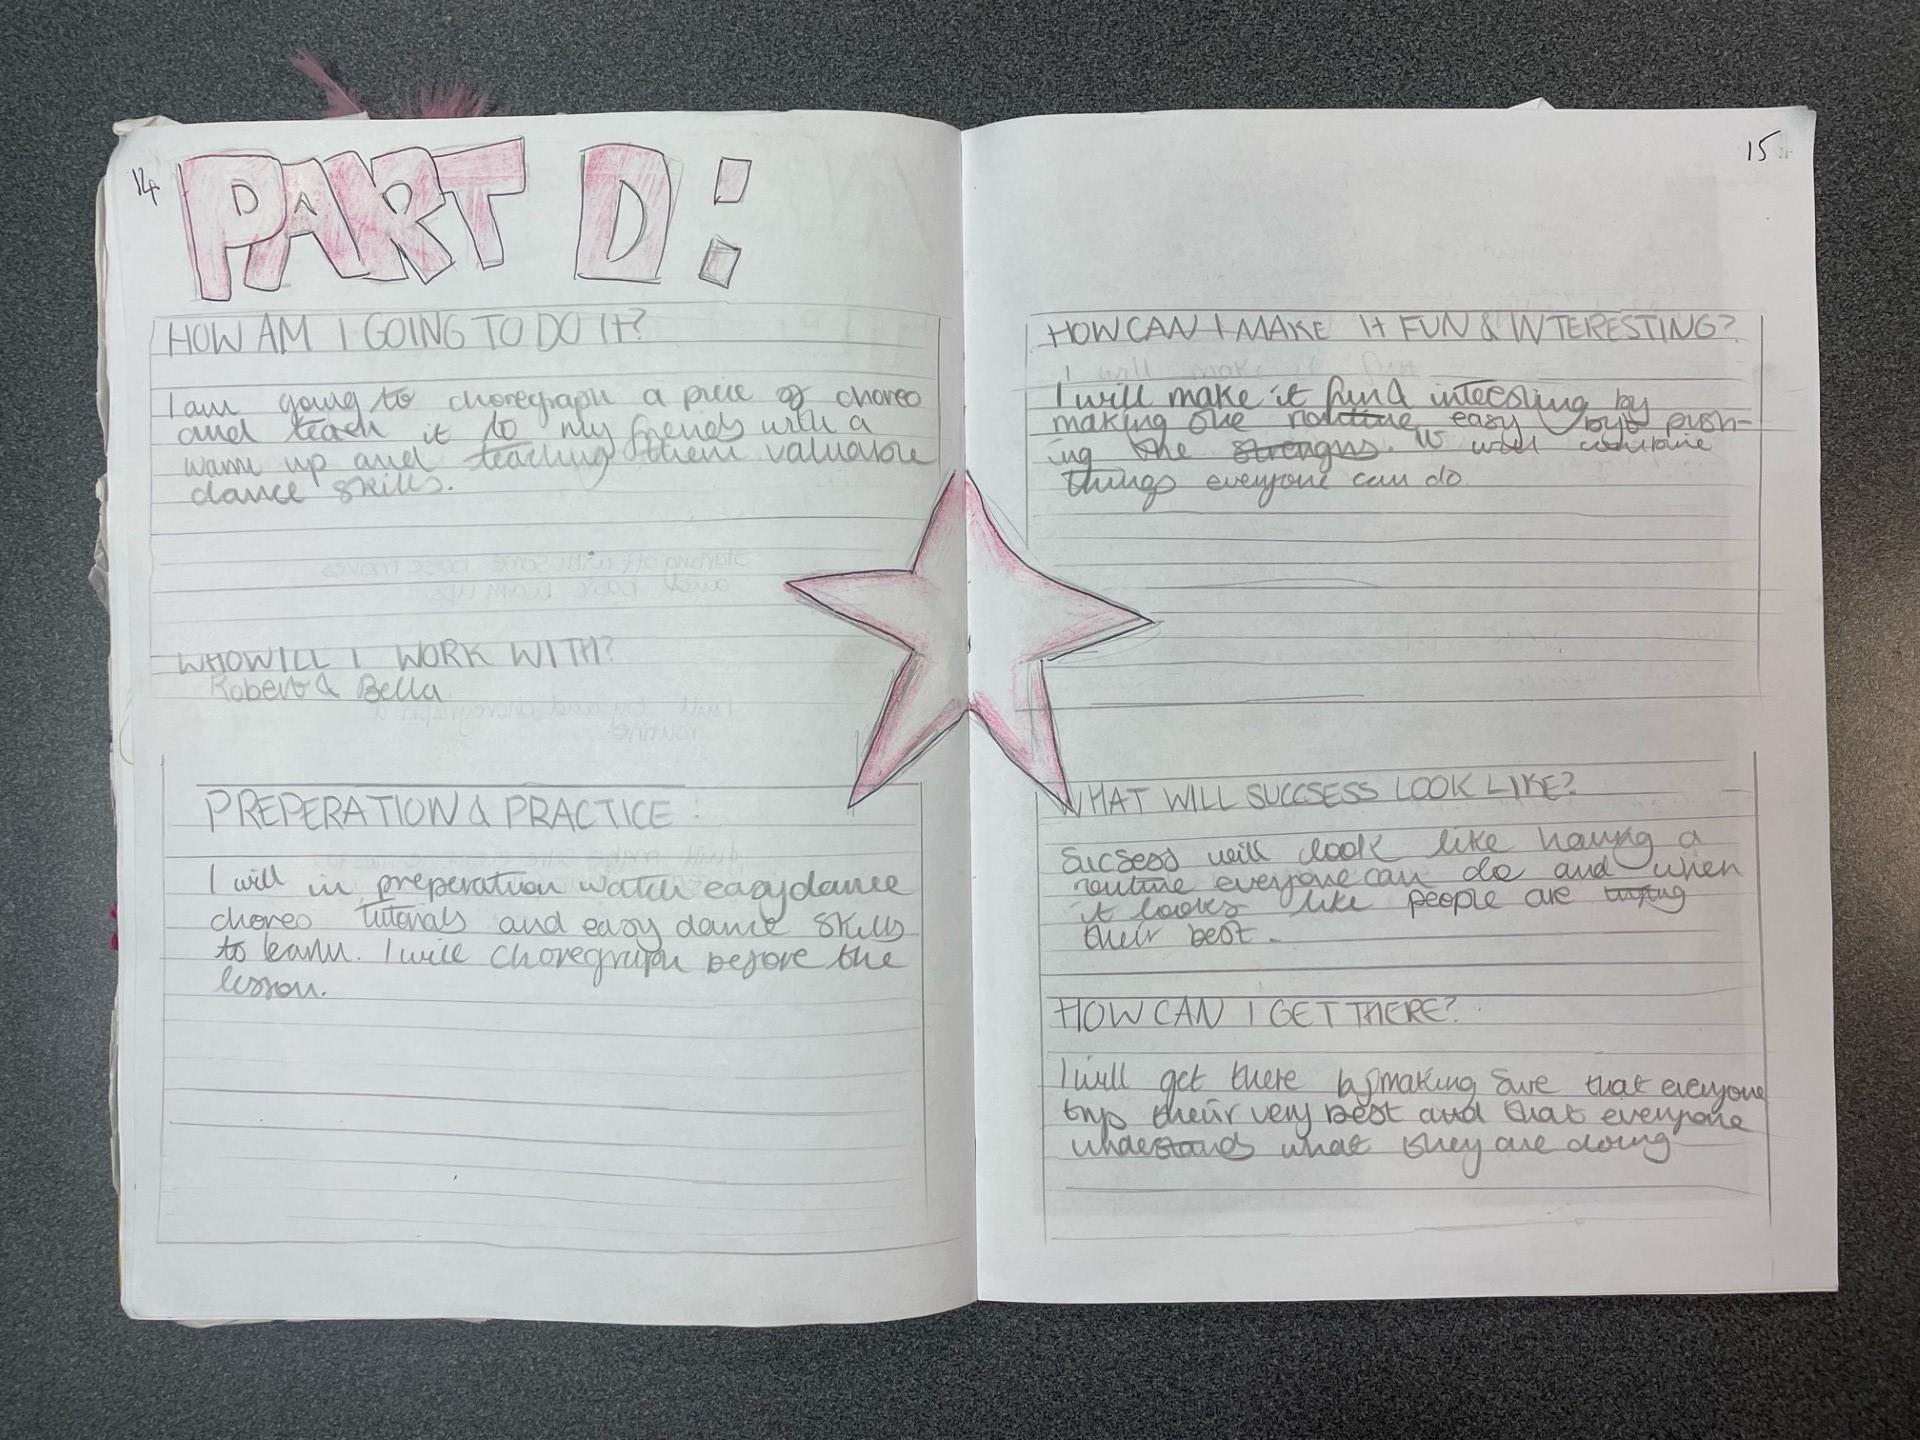 14
PART D:
HOW AM I GOING TO DO IT?
I am going to choregraph a piece of choreo
and teach it to my friends with a
warm up and teaching them valuable
dance skills.
WHO WILL I WORK WITH?
Robert & Bella
PREPERATION & PRACTICE :
I will in preperation watch easy dance
choreo tutorials and easy dance skills
to learn. I will choregraph before the
lesson.
15
HOW CAN I MAKE IT FUN & INTERESTING?
I will make it intersting by
making the routine easy but push-
ing the strengths. It will contain
things everyone can do
WHAT WILL SUCCSESS LOOK LIKE?
Sucsess will look like having a
routine everyone can do and when
it looks like people are trying
their best.
HOW CAN I GET THERE?
I will get there by making sure that everyone
trys their very best and that everyone
understands what they are doing